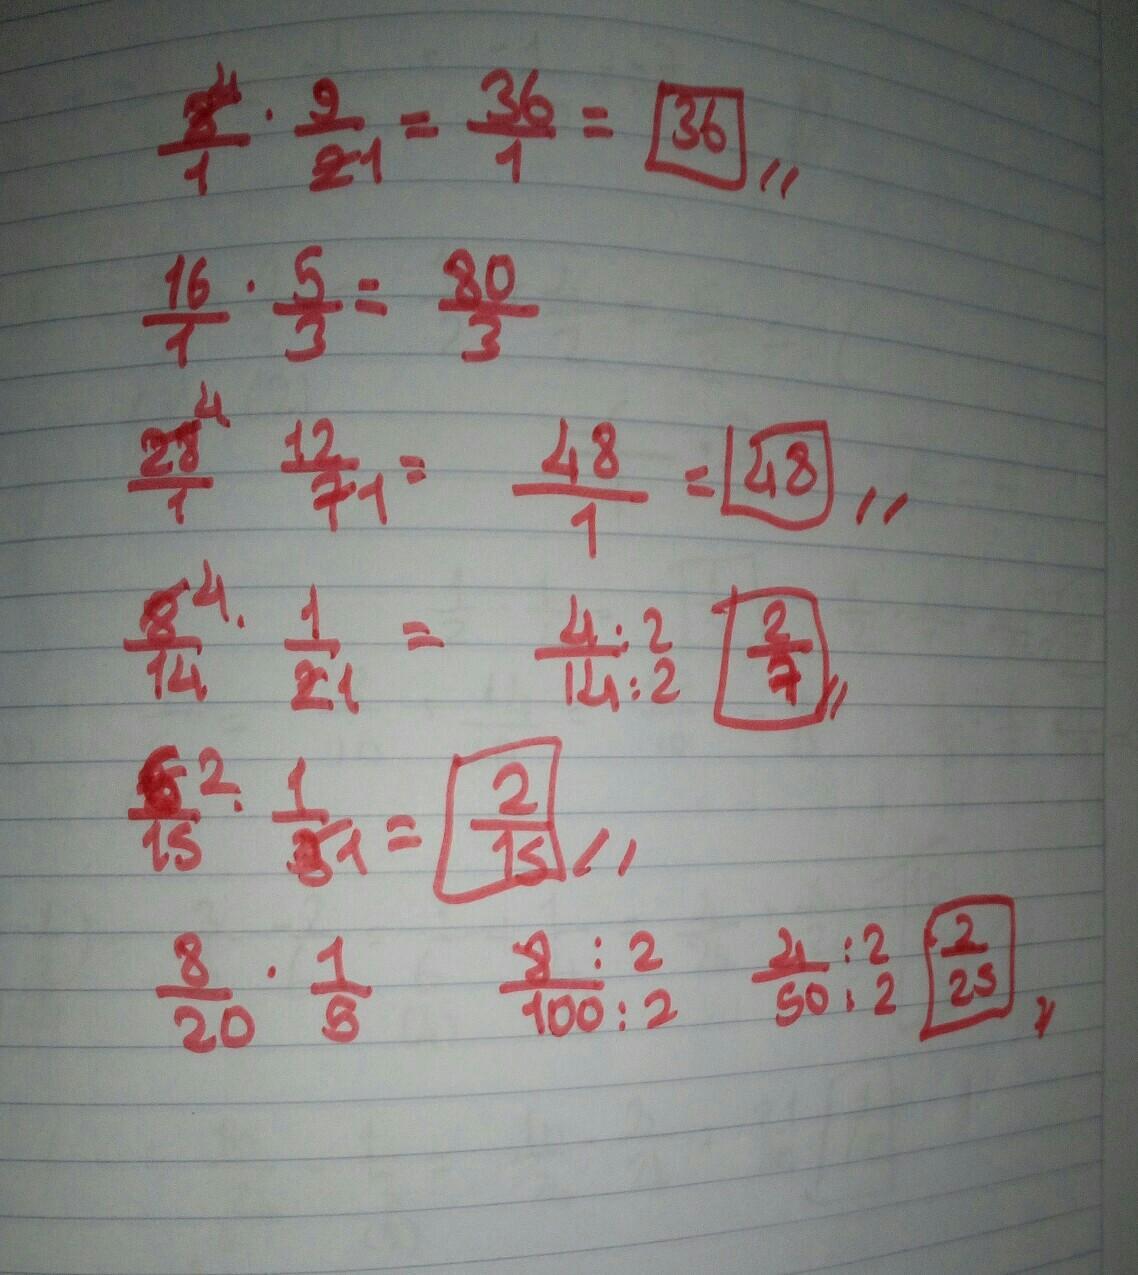 8⁴/1 · 9/2 1 = 36/1 = 36 ,,
16/1 · 5/3 = 80/3
28⁴/1 12/7 1 = 48/1 = 48 ,,
8⁴/14 · 1/2 1 = 4:2/14:2 2/7 ,,
6²/15 · 1/3 1 = 2/15 ,,
8/20 · 1/5 8:2/100:2 4:2/50:2 2/25 ,,